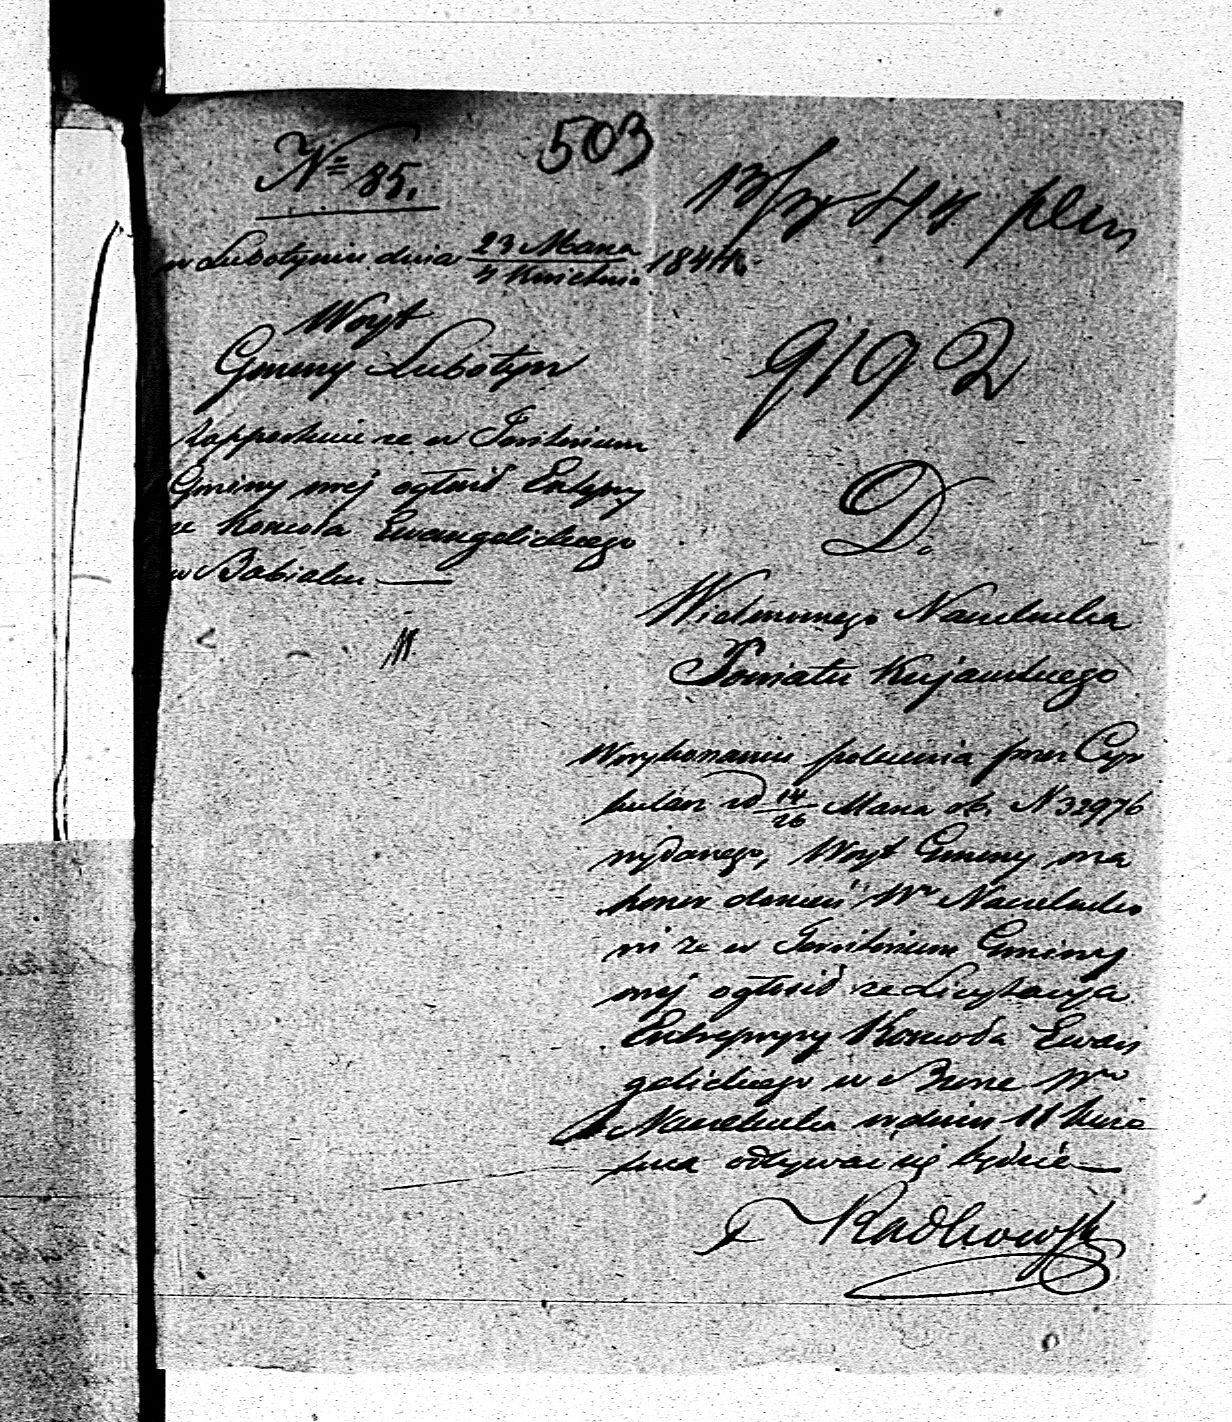 503
Nº 85.
w Lubotyniu dnia 23 Marca / 4 Kwietnia 1844 r.
Woyt
Gminy Lubotyn
rapportuie ze w Territorium
Gminy swej ogłosił Entrepryzy
Koscioła Ewangelickiego
w Babiaku
9192
D.
Wielmoznego Naczelnika
Powiatu Kujawskiego
W wykonaniu polecenia przez Cyr
kularz d 14/26 Marca rb. N 32976
wydanego, Woyt Gminy ma
honor donieść Wu Naczelniko
wi ze w Territorium Gminy
swej ogłosił ze Licytacyja
Entrepryzy Koscioła Ewan
gelickiego w Biurze Wgo
Naczelnika w dniu 11 Kwie
tnia odbywać się będzie
Radkowsk